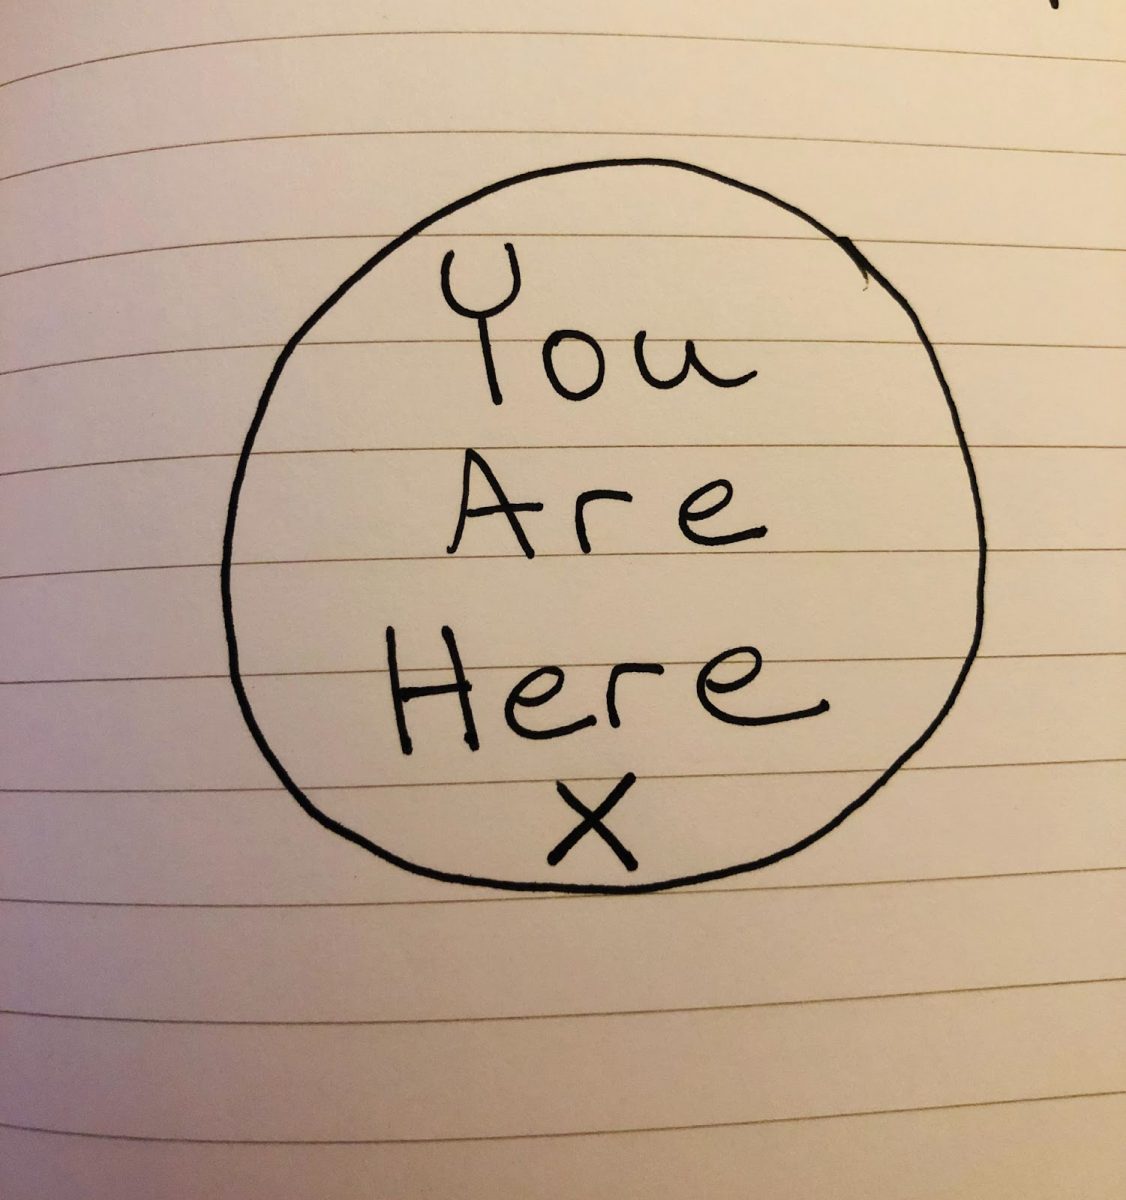 You
Are
Here
X